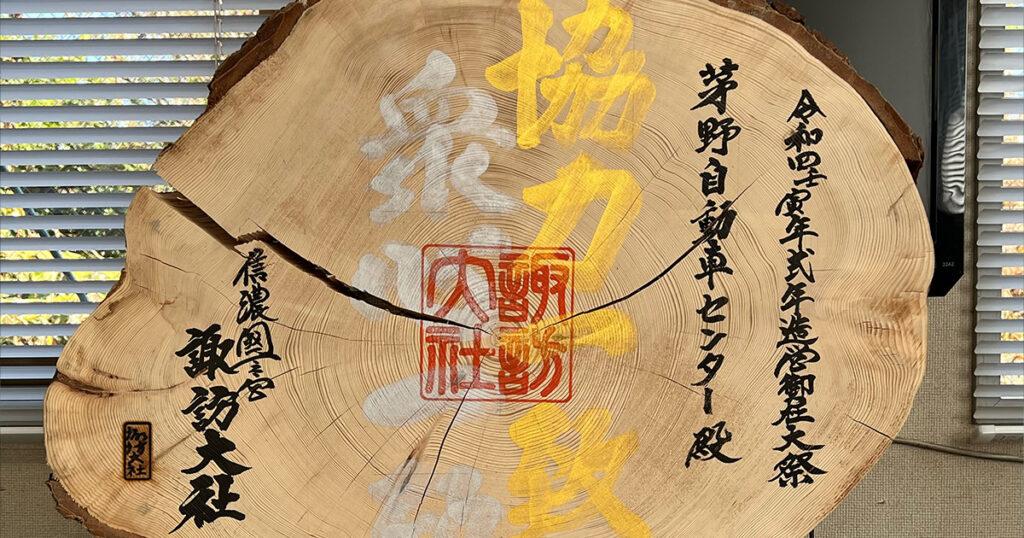 令和四壬寅年式年造営御柱大祭
茅野自動車センター殿
協力一致
衆心一
諏訪大社
信濃國一之宮
諏訪大社
諏訪大社